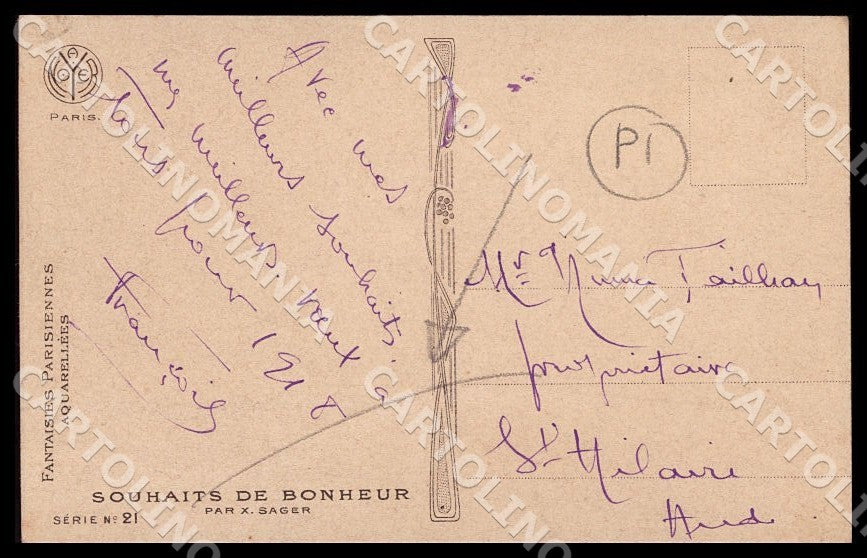 PARIS.
FANTAISIES PARISIENNES
AQUARELLÉES
Avec mes
meilleurs souhaits.
mes meilleurs vœux à
tous pour 1918
François
P1
Mr Numa Tailhan
propriétaire
St Hilaire
Aude
SOUHAITS DE BONHEUR
PAR X. SAGER
SÉRIE No 21
CARTOLINOMANIA